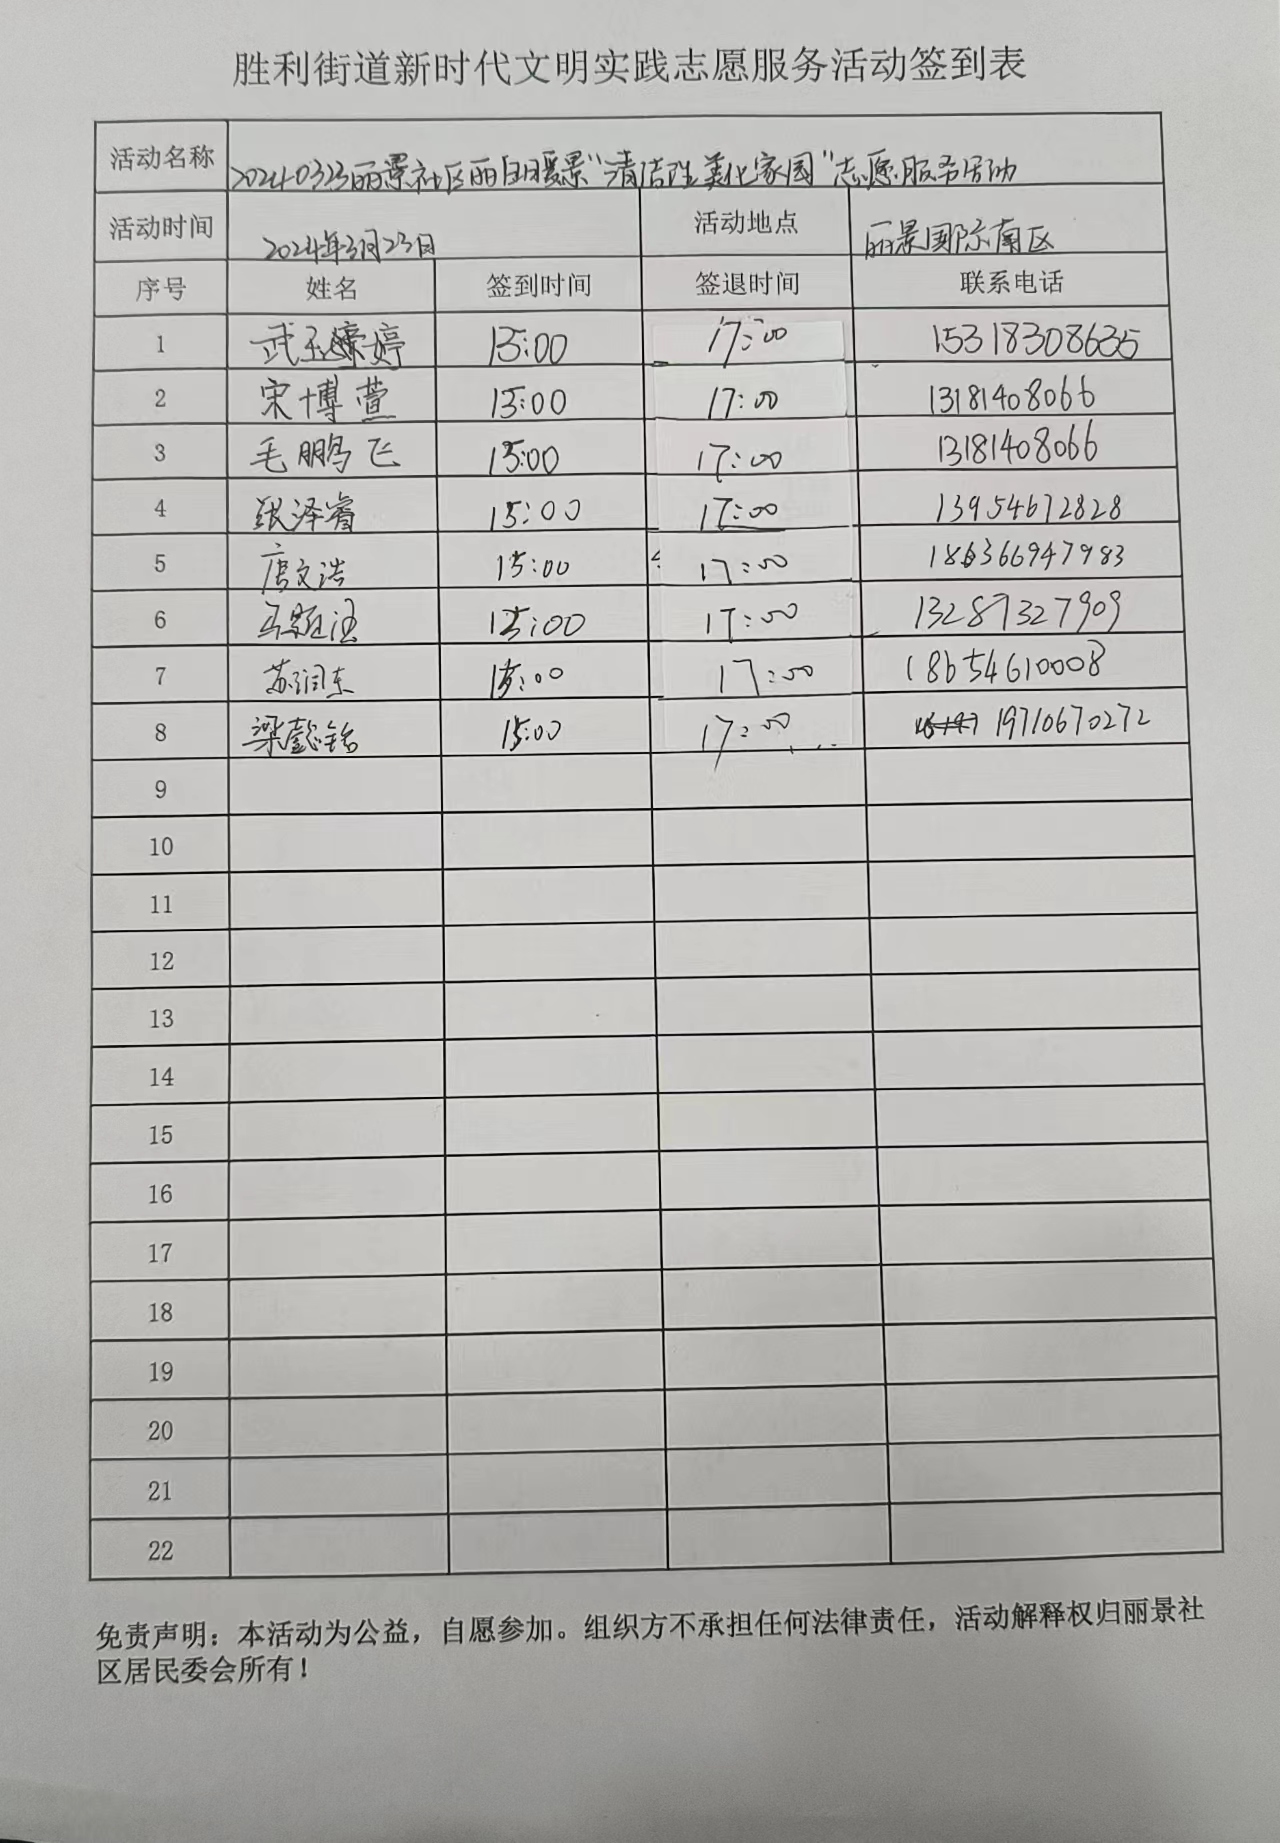 胜利街道新时代文明实践志愿服务活动签到表
活动名称 20240323丽景社区丽日暖景“清洁 美化家园”志愿服务活动
活动时间 2024年3月23日 活动地点 丽景国际南区
序号 姓名 签到时间 签退时间 联系电话
1 武玉婷 15:00 17:00 15318308635
2 宋博萱 15:00 17:00 13181408066
3 毛鹏飞 15:00 17:00 13181408066
4 张泽睿 15:00 17:00 13954672828
5 唐文浩 15:00 17:00 18366947983
6 15:00 17:00 13287327909
7 苏润东 15:00 17:00 18654610008
8 梁懿铭 15:00 17:00 19710670272
9
10
11
12
13
14
15
16
17
18
19
20
21
22
免责声明：本活动为公益，自愿参加。组织方不承担任何法律责任，活动解释权归丽景社
区居民委会所有！